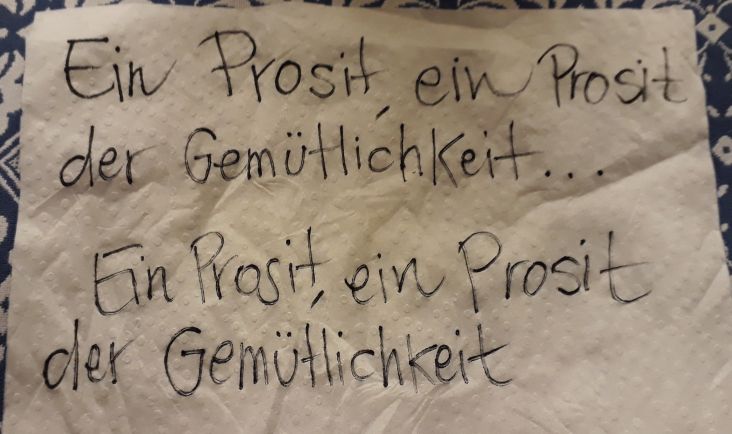 Ein Prosit, ein Prosit
der Gemütlichkeit...
Ein Prosit, ein Prosit
der Gemütlichkeit